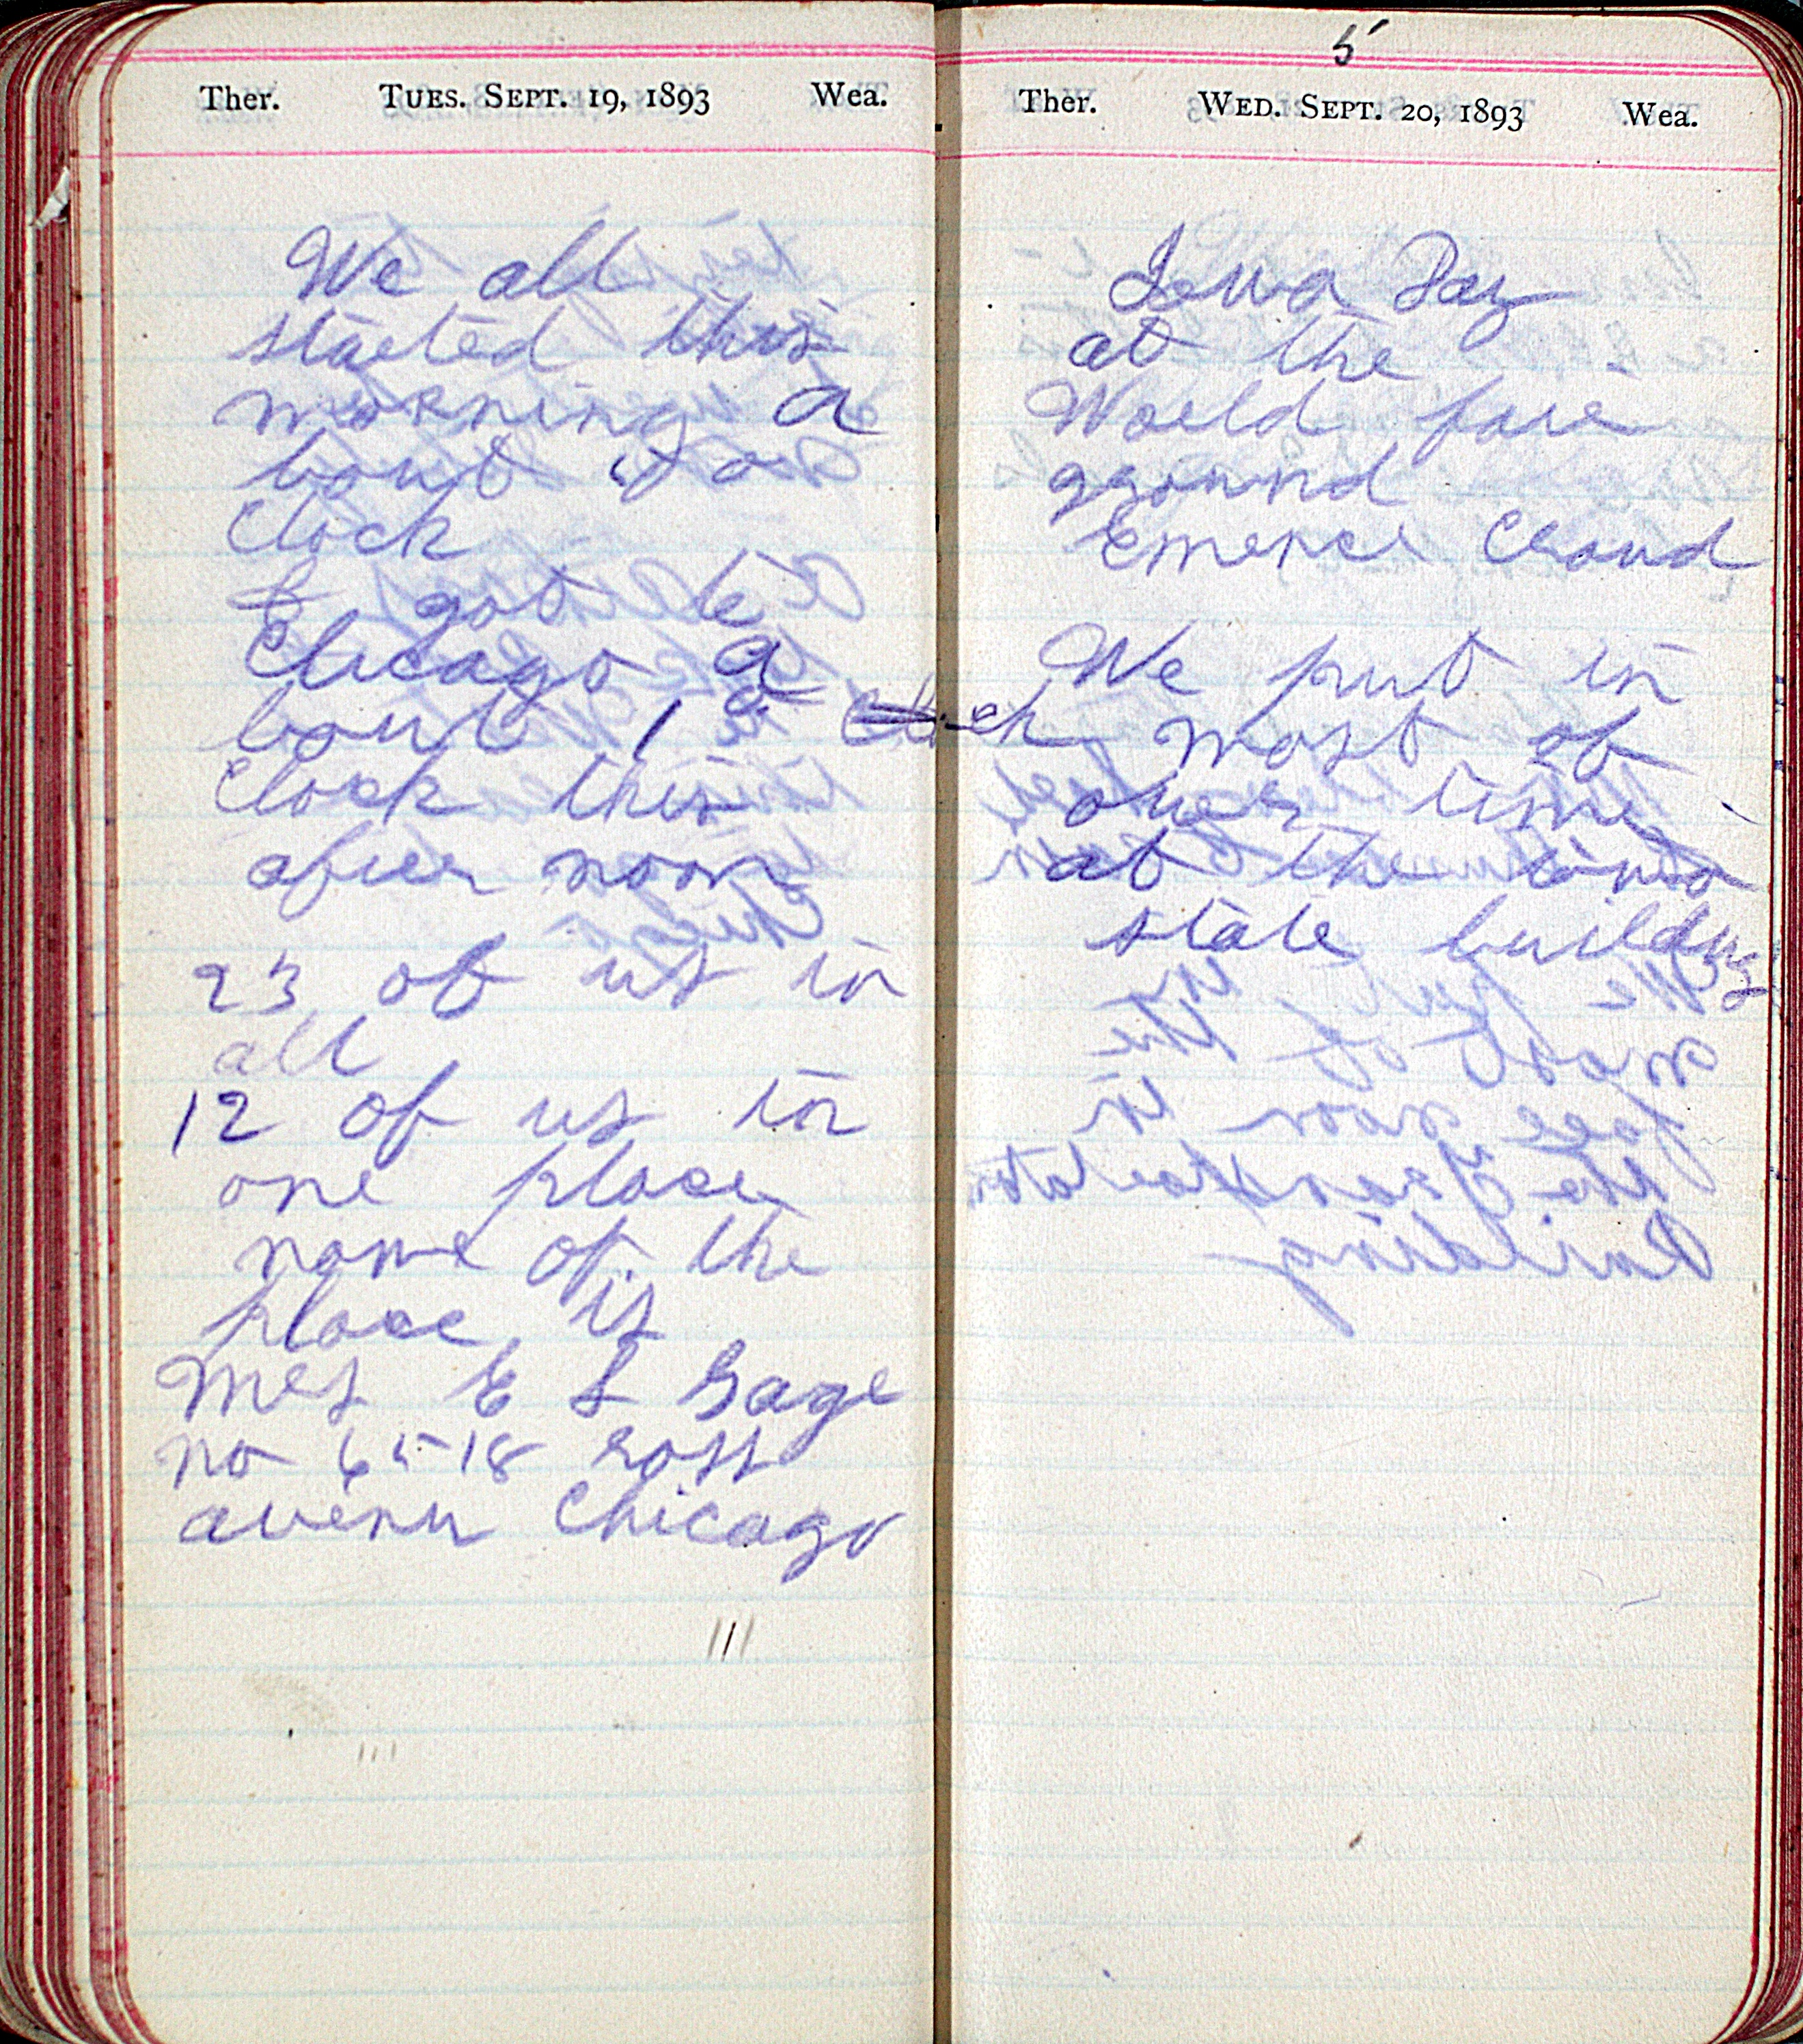 Ther. TUES. SEPT. 19, 1893 Wea.
We all
started this
morning a
bout 9 o
Clock
& got to
Chicago a
bout 1 o
Clock this
after noon
23 of us in
all
12 of us in
one place
name of the
place is
Mrs E S Gage
no 6518 ross
avenu Chicago
5
Ther. WED. SEPT. 20, 1893 Wea.
Iowa Day
at the
World fair
gground
Emence Croud
We put in
most of
ouer time
at the iowa
state building